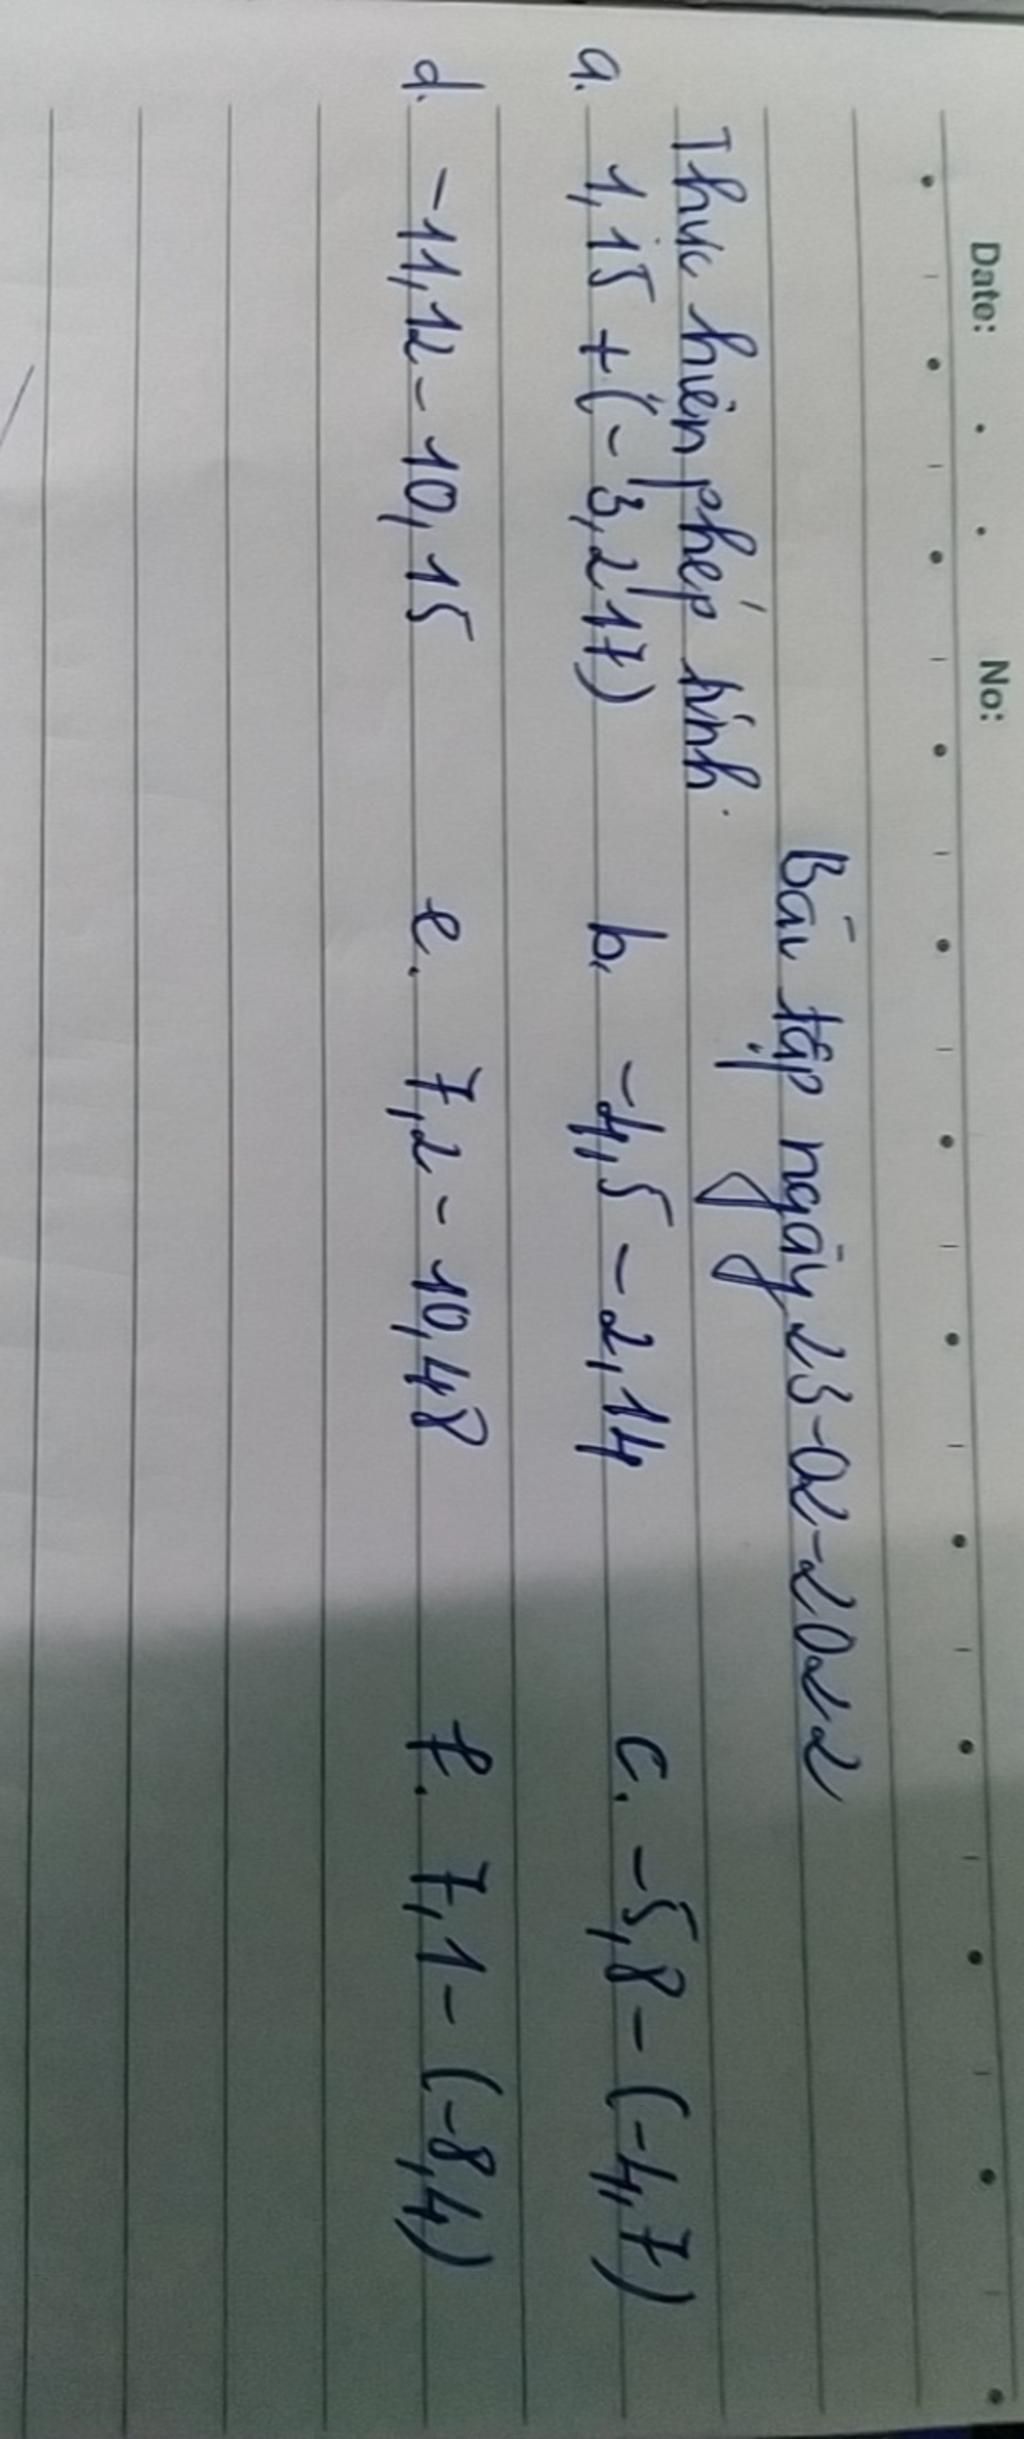 Date: No:
Bài tập ngày 23-02-2022
Thực hiện phép tính.
a. 1,15 + (-3,217) b. -4,5 - 2,14 c. -5,8 - (-4,7)
d. -11,12 - 10,15 e. 7,2 - 10,48 f. 7,1 - (-8,4)